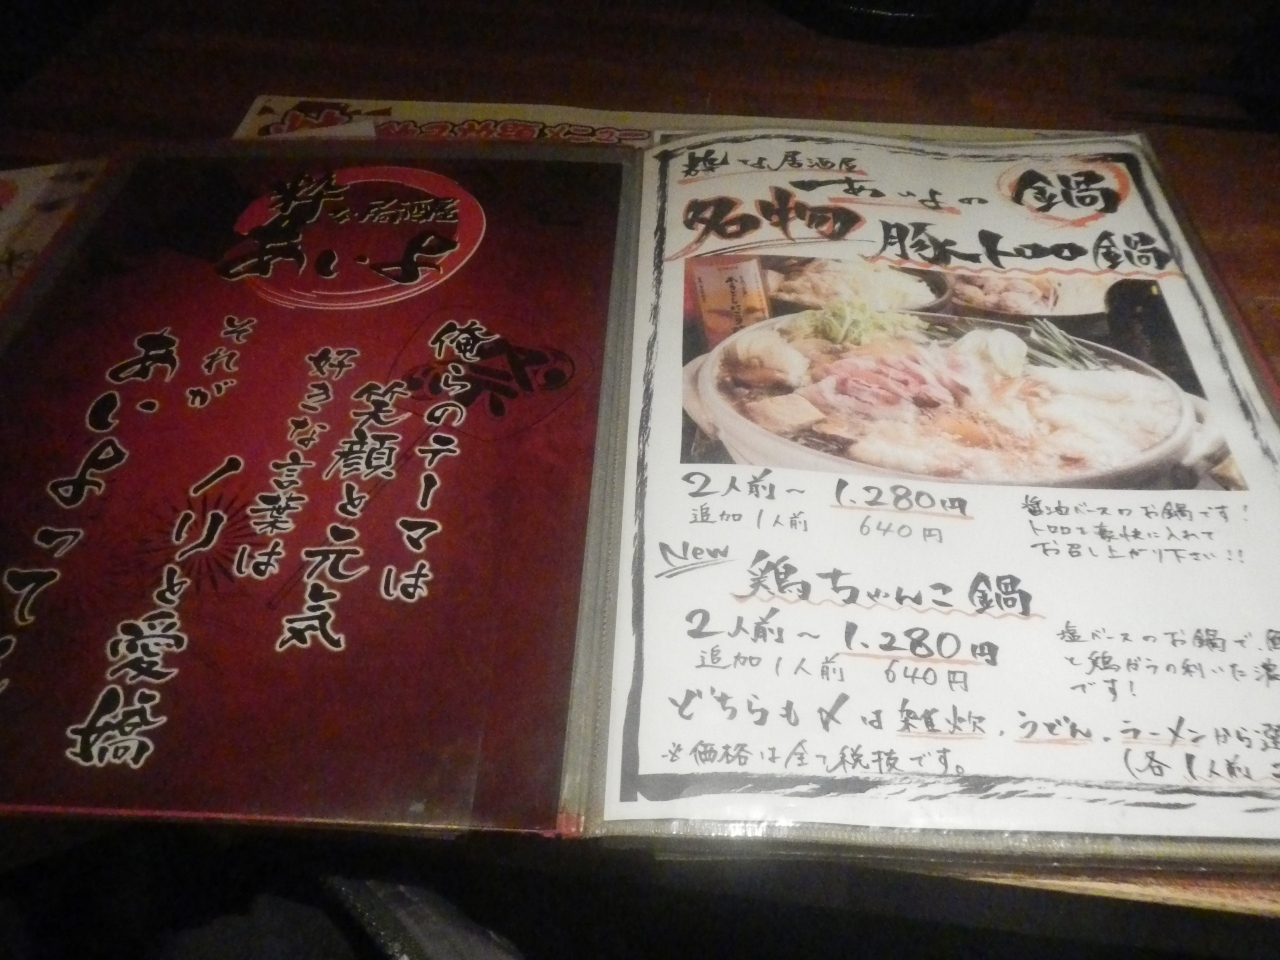 飲み放題メニュー
粋な居酒屋
あいよ
俺らのテーマは
笑顔と元気
好きな言葉は
ノリと愛嬌
それが
あいよって
粋な居酒屋
あいよの鍋
名物
豚トロロ鍋
2人前〜 1.280円
追加1人前 640円
醤油ベースのお鍋です!
トロロを豪快に入れて
お召し上がり下さい!!
New
鶏ちゃんこ鍋
2人前〜 1.280円
追加1人前 640円
塩ベースのお鍋で、
と鶏ガラの利いた濃
です!
どちらも〆は雑炊、うどん、ラーメンから選
(各1人前
※価格は全て税抜です。